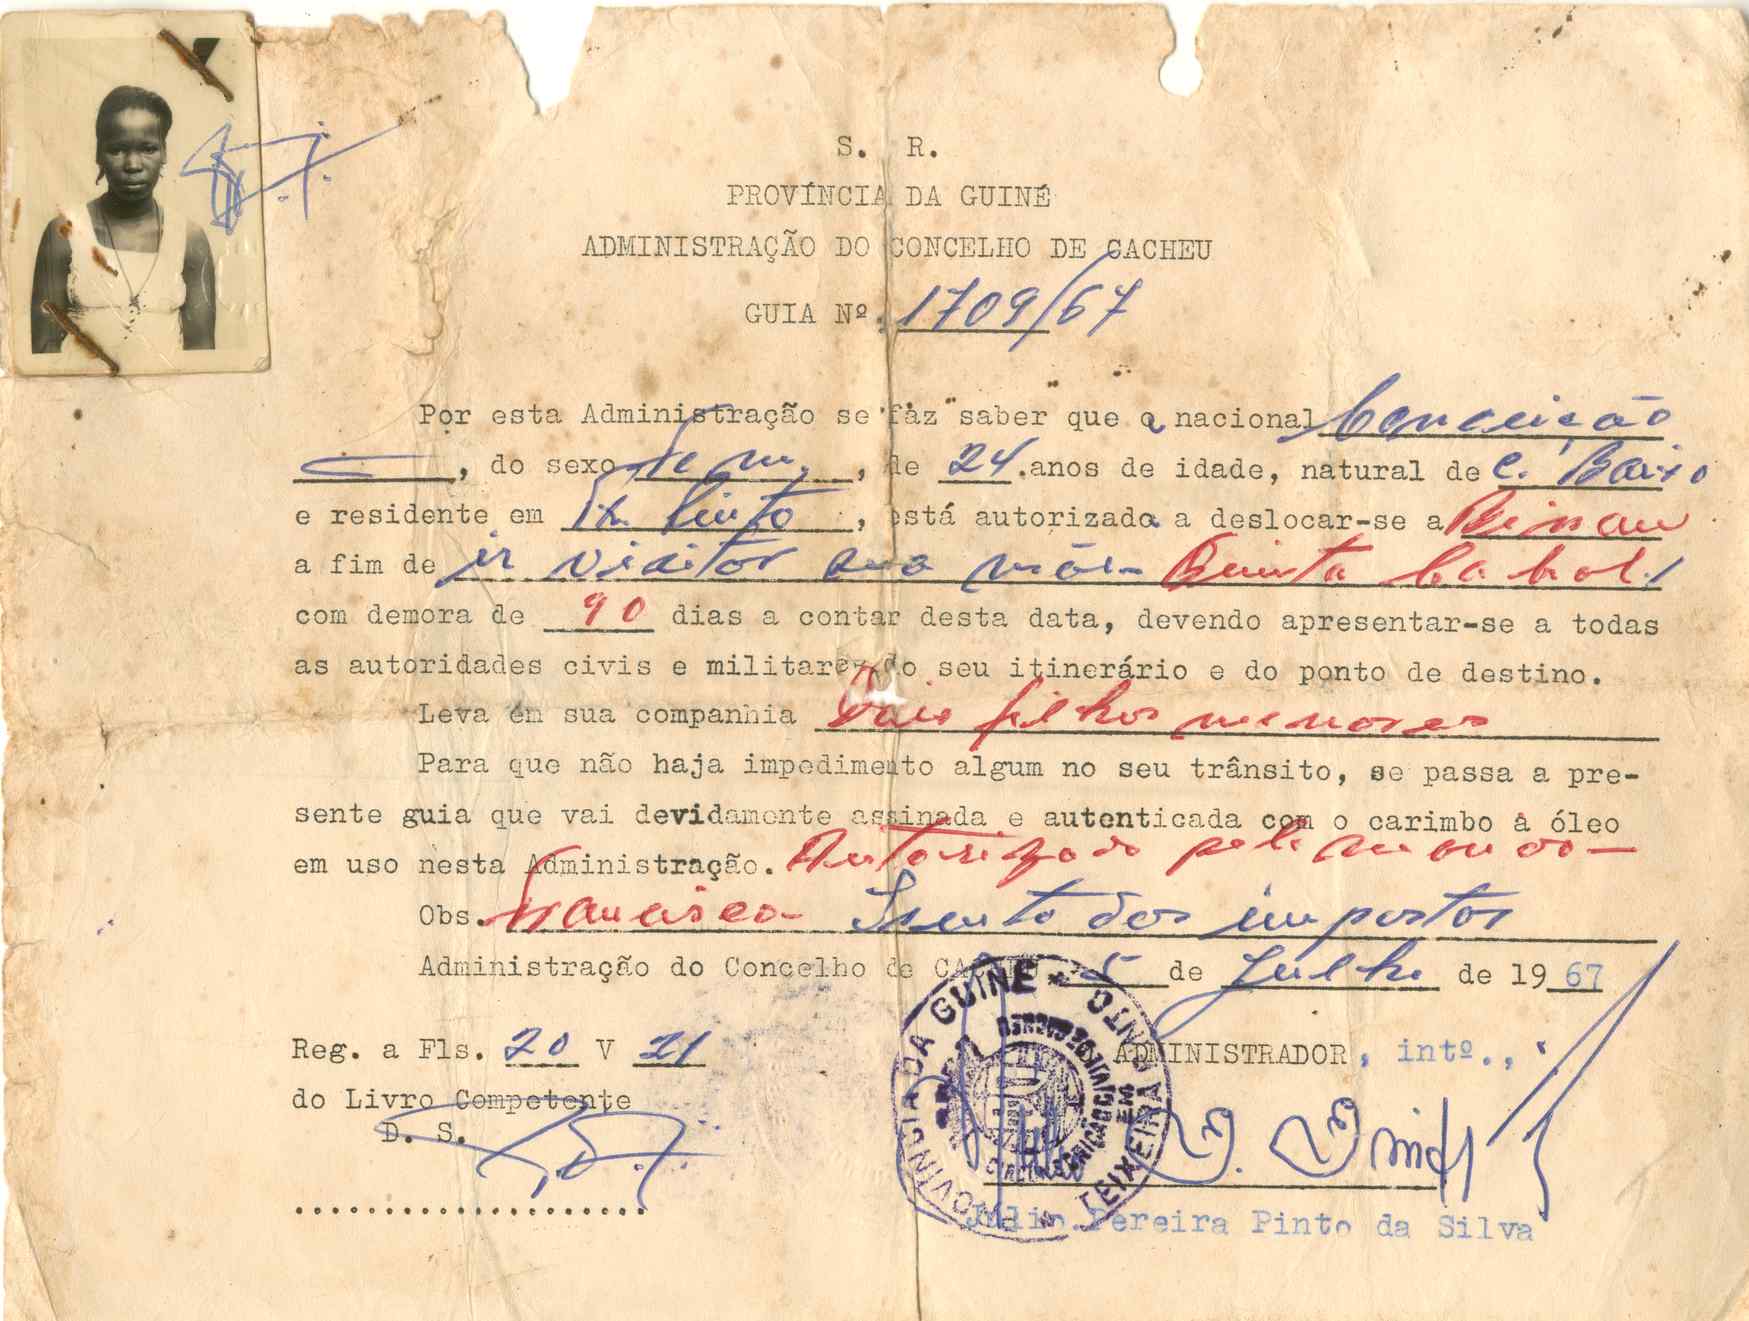 S. R.
PROVÍNCIA DA GUINÉ
ADMINISTRAÇÃO DO CONCELHO DE CACHEU
GUIA Nº. 1709/67
Por esta Administração se faz saber que a nacional Conceição
, do sexo fem., de 24.anos de idade, natural de C. Baixo
e residente em Tx. Pinto, está autorizada a deslocar-se a Binau
a fim de ir visitar sua mãe Quinta
com demora de 90 dias a contar desta data, devendo apresentar-se a todas
as autoridades civis e militares do seu itinerário e do ponto de destino.
Leva em sua companhia Dois filhos menores
Para que não haja impedimento algum no seu trânsito, se passa a pre-
sente guia que vai devidamente assinada e autenticada com o carimbo à óleo
em uso nesta Administração. Autorizado pelo marido
Obs. Francisco - Isento dos impostos
Administração do Concelho de 5 de Julho de 1967
Reg. a Fls. 20 V 21
ADMINISTRADOR, intº.,
do Livro Competente
D. S.
PROVINCIA DA GUINÉ * TEIXEIRA PINTO *
Júlio Pereira Pinto da Silva